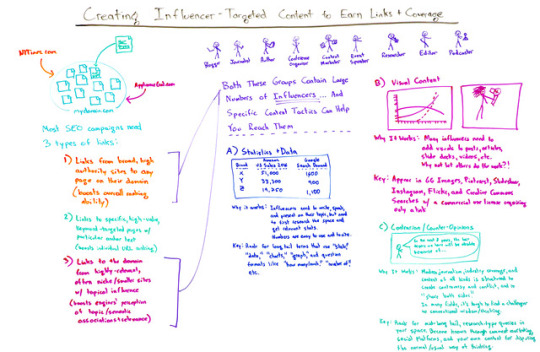 Creating Influencer-Targeted Content to Earn Links + Coverage
NYTimes.com
mydomain.com
Most SEO campaigns need
3 types of links:
1) Links from broad, high
authority sites to any
page on their domain
(boosts overall ranking
ability)
2) Links to specific, high-value,
keyword-targeted pages w/
particular anchor text
(boosts individual URL ranking)
3) Links to the domain
from highly-relevant,
often niche/smaller sites
w/ topical influence
(boosts engines' perception
of topic/semantic
associations + relevance)
Blogger
Journalist
Author
Conference
Organizer
Content
Marketer
Event
Speaker
Researcher
Editor
Podcaster
Both These Groups Contain Large
Numbers of Influencers... And
Specific Content Tactics Can Help
You Reach Them
A) Statistics + Data
Brand
X 51,000
Y
Z 19,250 1,100
Why it works: Influencers need to write, speak,
and present on their topic, but need
to first research the space and
get relevant stats.
Numbers are easy to use and to cite.
Key: Rank for long tail terms that use "stats,"
"data," "charts," "graph," and question
formats like "how many/much," "number of,"
etc.
B) Visual Content
Why It Works: Many influencers need to
add visuals to posts, articles,
slide decks, videos, etc.
Why not let others do the work?!
Key: Appear in GG Images, Pinterest, Slideshare,
Instagram, Flickr, and Creative Commons
Searches w/ a commercial use license requiring
only a link
C) Contrarian/Counter-Opinions
Why It Works: Modern journalism, industry coverage, and
content of all kinds is structured to
create controversy and conflict, and is
"share both sides"
In many fields, it's tough to find a challenger
to conventional wisdom/thinking
Key: Rank for mid-long tail, research-type queries in
your space. Become known through comment marketing,
social platforms, and your own content for opposing
the normal/usual way of thinking.